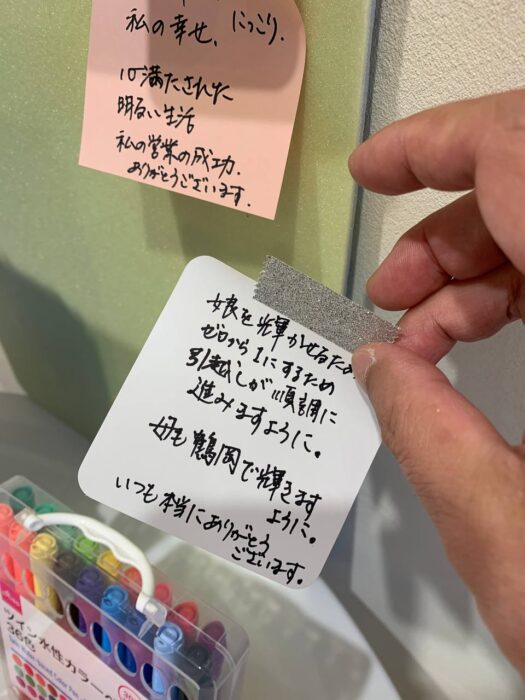 私の幸せ、にっこり.
心満たされた
明るい生活
私の営業の成功.
ありがとうございます.
娘を輝かせるため
ゼロから1にするため
引越しが順調に
進みますように。
母も鶴岡で輝きます
ように。
いつも本当にありがとう
ございます。
ツイン水性カラーペ
36色